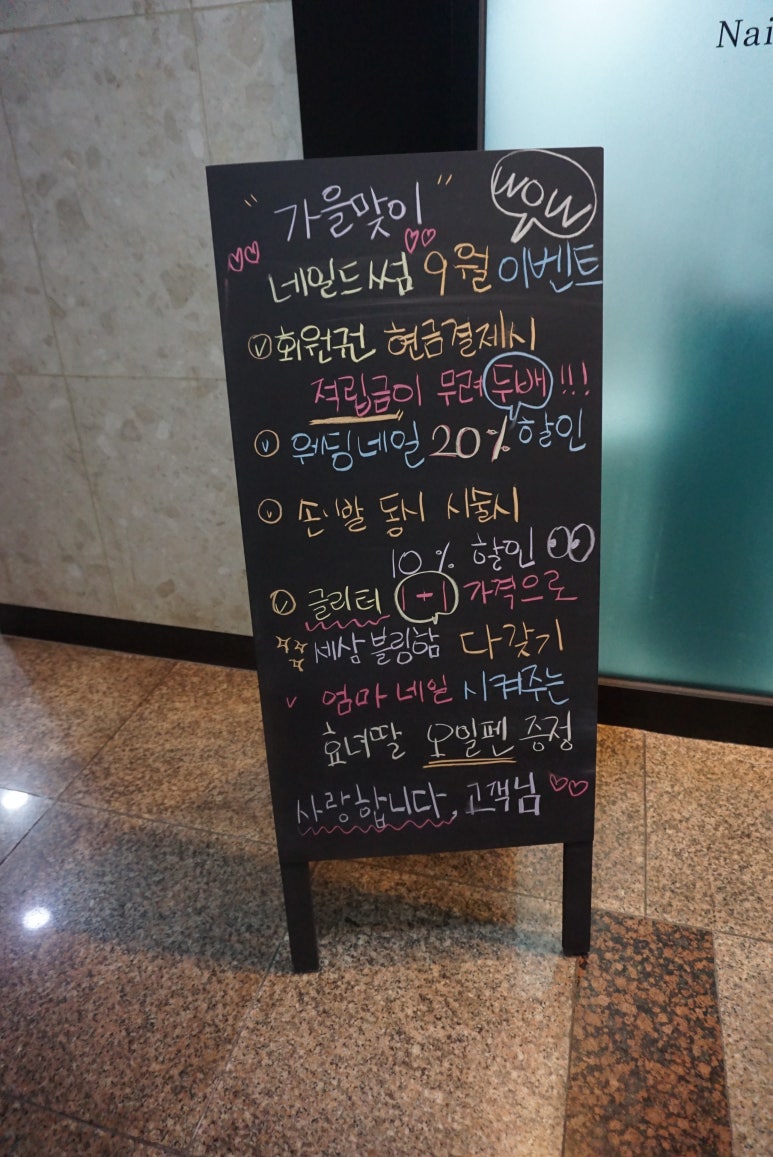 Nai
"가을맞이" WOW
네일드썸 9월 이벤트
회원권 현금결제시
적립금이 무려 두배!!!
웨딩네일 20% 할인
손,발 동시 시술시
10% 할인
글리터 1+1 가격으로
세상 블링함 다갖기
엄마 네일 시켜주는
효녀딸 오일펜 증정
사랑합니다, 고객님